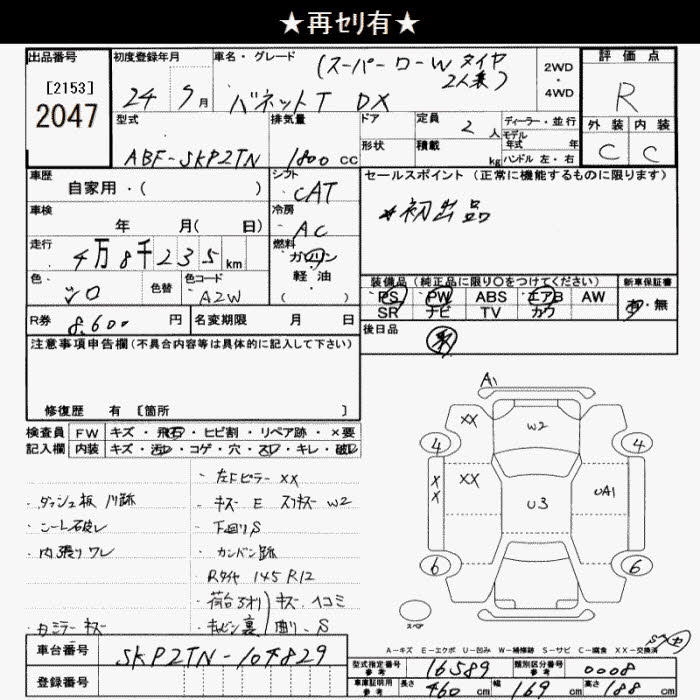 ★再ｾﾘ有★
出品番号
[2153]
2047
初度登録年月
24 9月
車名・グレード
(スーパーローW タイヤ
2人乗)
バネットT DX
2WD
・
4WD
評価点
R
外装 内装
C C
型式
ABF-SKP2TN
排気量
1800 cc
ドア
形状
定員
2 人
積載
kg
ディーラー・並行
モデル
年式 年
ハンドル 左・右
車歴
自家用・( )
シフト
CAT
セールスポイント (正常に機能するものに限ります)
*初出品
車検
年 月( 日)
冷房
AC
走行
4万8千235km
燃料
ガソリン
軽・油
( )
色
シロ
色替
色コード
A2W
装備品 (純正品に限り○をつけてください)
新車保証書
PS PW ABS エアB AW
SR ナビ TV カワ
有・無
R券 8,600 円
名変期限 月 日
後日品
注意事項申告欄(不具合内容等は具体的に記入して下さい)
修復歴 有 [箇所 ]
検査員 FW キズ・飛石・ヒビ割・リペア跡・×要
記入欄 内装 キズ・汚レ・コゲ・穴・スレ・キレ・破レ
・左Fピラー XX
・ダッシュ板 ハリ跡
・キズ E スリキズ W2
・シート破レ
・下回りS
・内張りワレ
・カンバン跡
Rタイヤ 145R12
・荷台3オリ キズ、ヘコミ
・右ミラーキズ
・キャビン裏 曲リ、S
A1
XX
W2
4
4
XX
XX
U3
UA1
6
6
スペア
A-キズ E-エクボ U-凹み W-補修跡 S-サビ C-腐食 XX-交換済
車台番号
SKP2TN-104829
登録番号
型式指定番号
参考
16589
類別区分番号
参考
0008
車庫証明用
参考
長さ
460 cm
幅
169 cm
高さ
188 cm